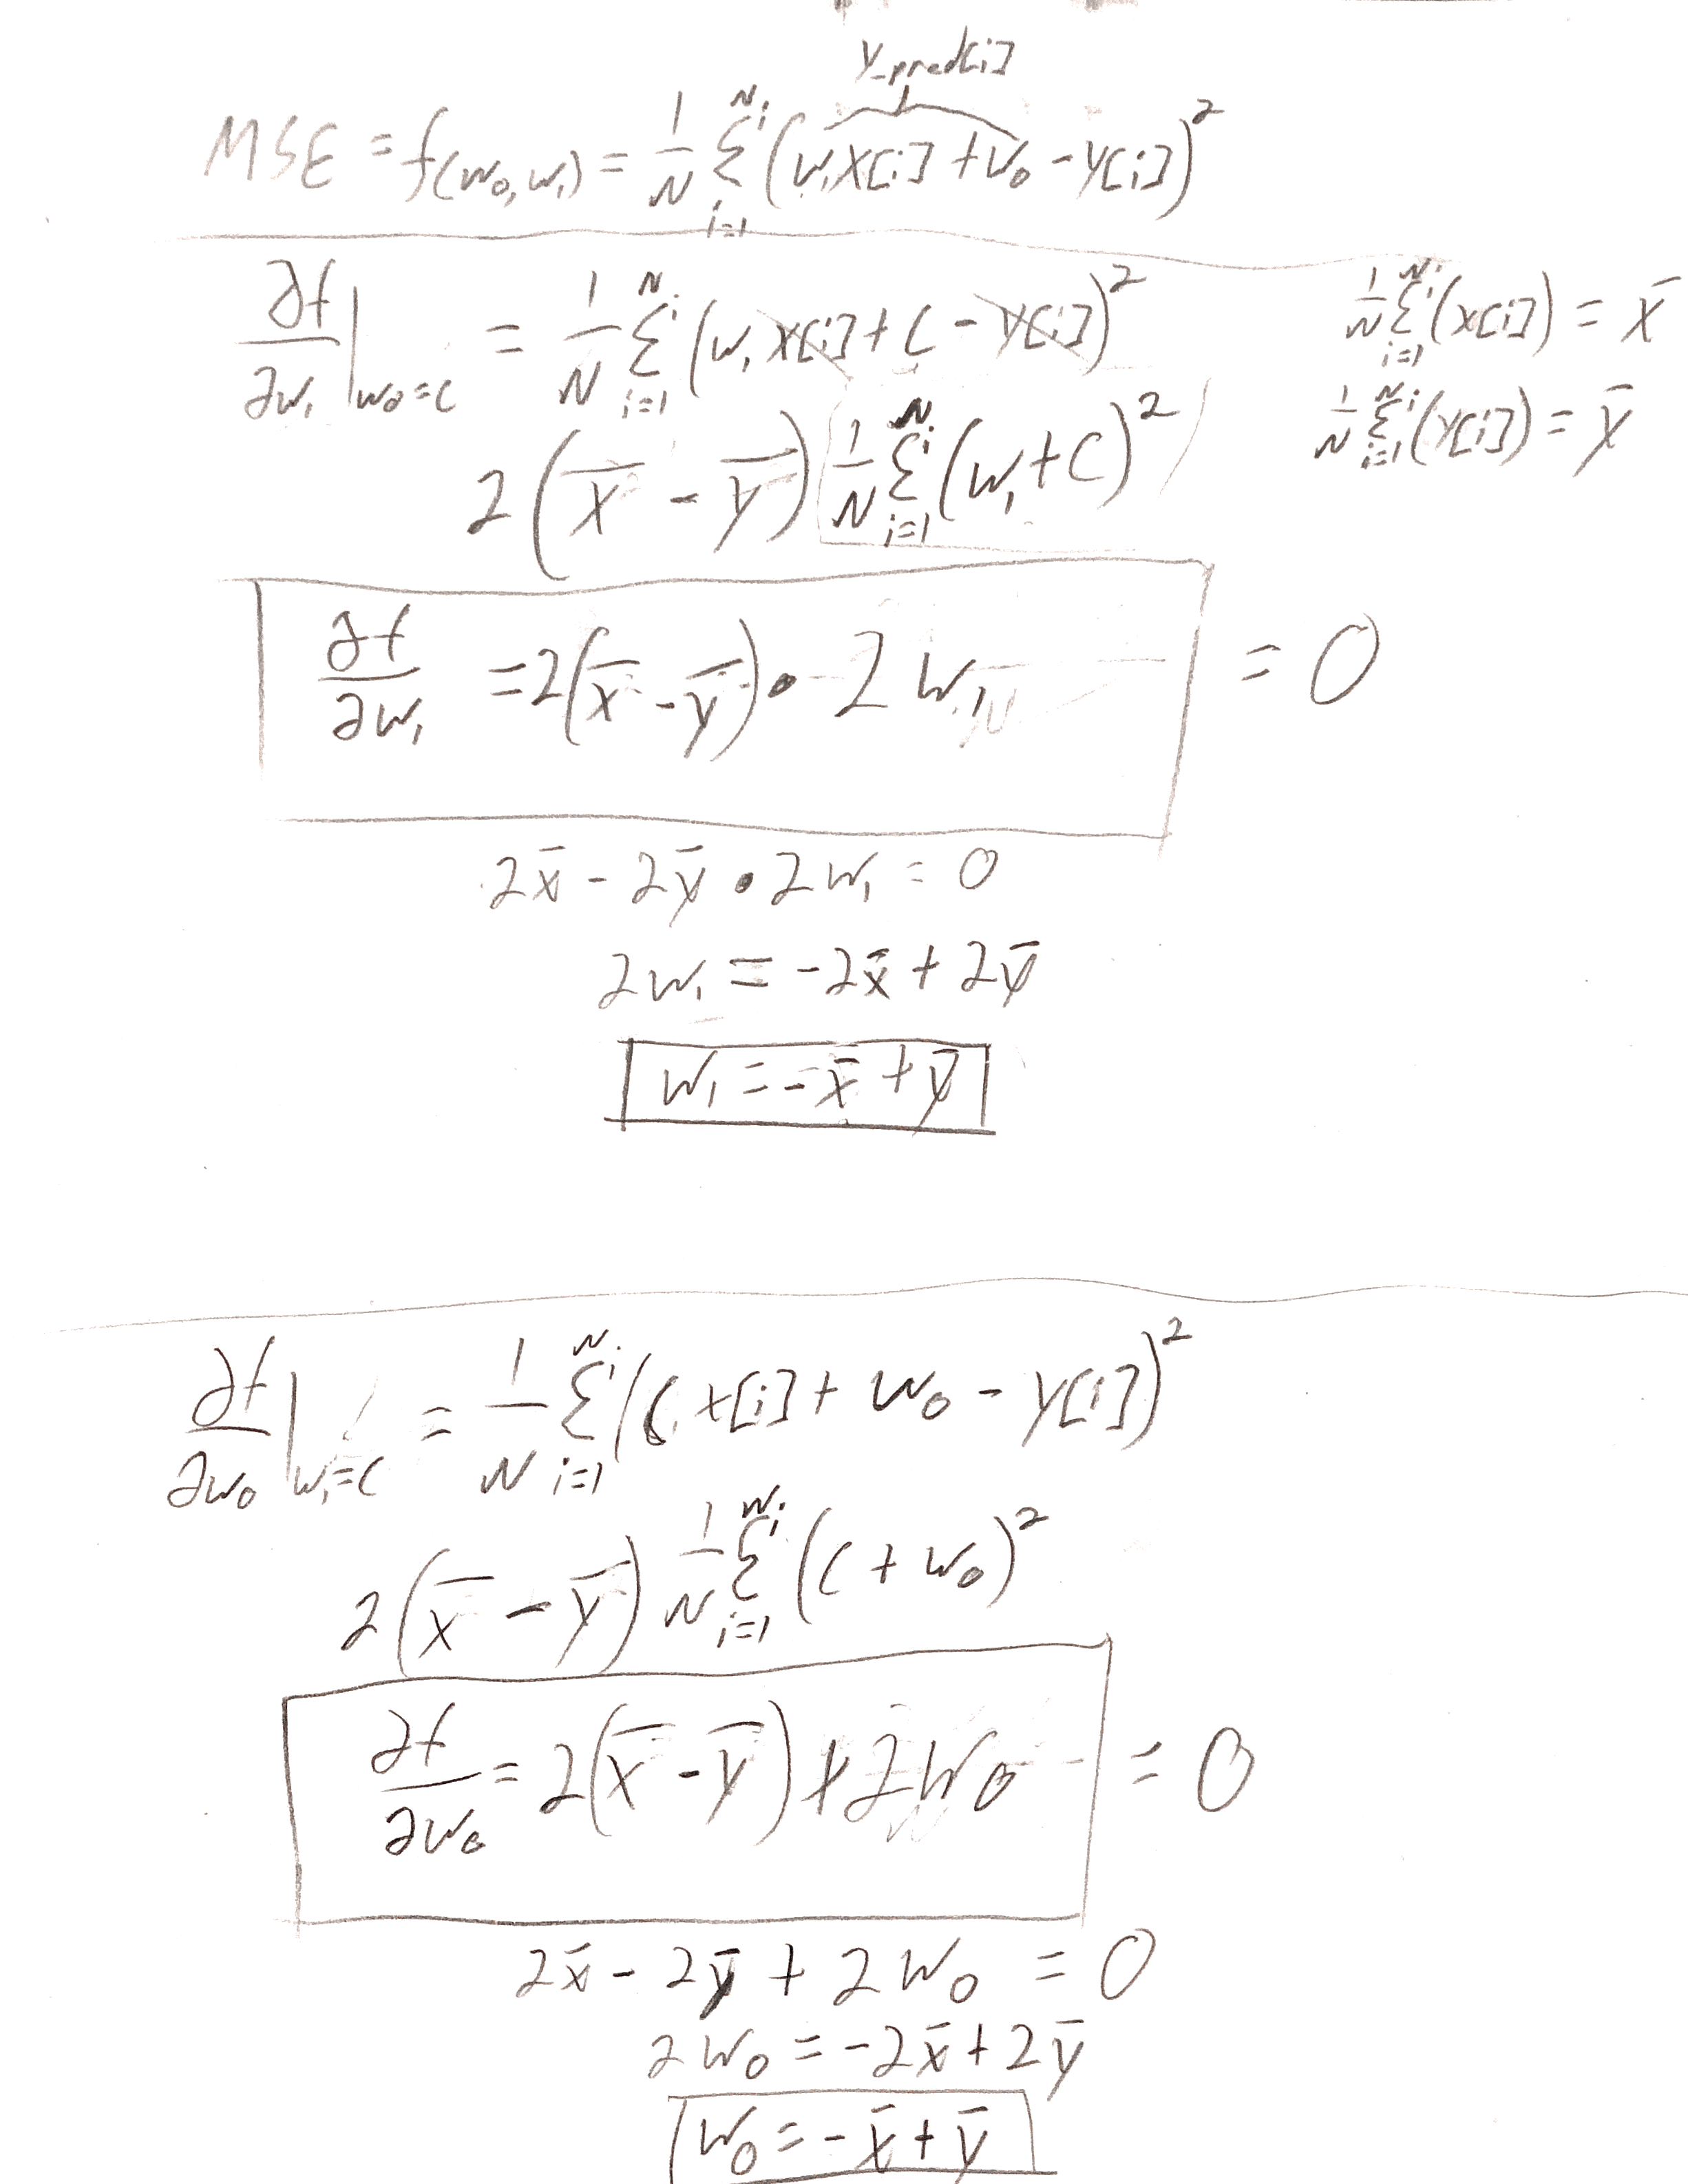 y_pred[i]
MSE = f(w₀, w₁) = 1/N Σᵢ₌₁ᴺⁱ (w₁x[i] + w₀ - y[i])²
∂f/∂w₁ |w₀=c = 1/N Σᵢ₌₁ᴺⁱ (w₁x[i] + c - y[i])²
1/N Σᵢ₌₁ᴺⁱ (x[i]) = x̄
1/N Σᵢ₌₁ᴺⁱ (y[i]) = ȳ
2(x̄ - ȳ) 1/N Σᵢ₌₁ᴺⁱ (w₁ + c)²
∂f/∂w₁ = 2(x̄ - ȳ) • 2w₁ = 0
2x̄ - 2ȳ • 2w₁ = 0
2w₁ = -2x̄ + 2ȳ
w₁ = -x̄ + ȳ
∂f/∂w₀ |w₁=c = 1/N Σᵢ₌₁ᴺⁱ (c x[i] + w₀ - y[i])²
2(x̄ - ȳ) 1/N Σᵢ₌₁ᴺⁱ (c + w₀)²
∂f/∂w₀ = 2(x̄ - ȳ) + 2w₀ = 0
2x̄ - 2ȳ + 2w₀ = 0
2w₀ = -2x̄ + 2ȳ
w₀ = -x̄ + ȳ